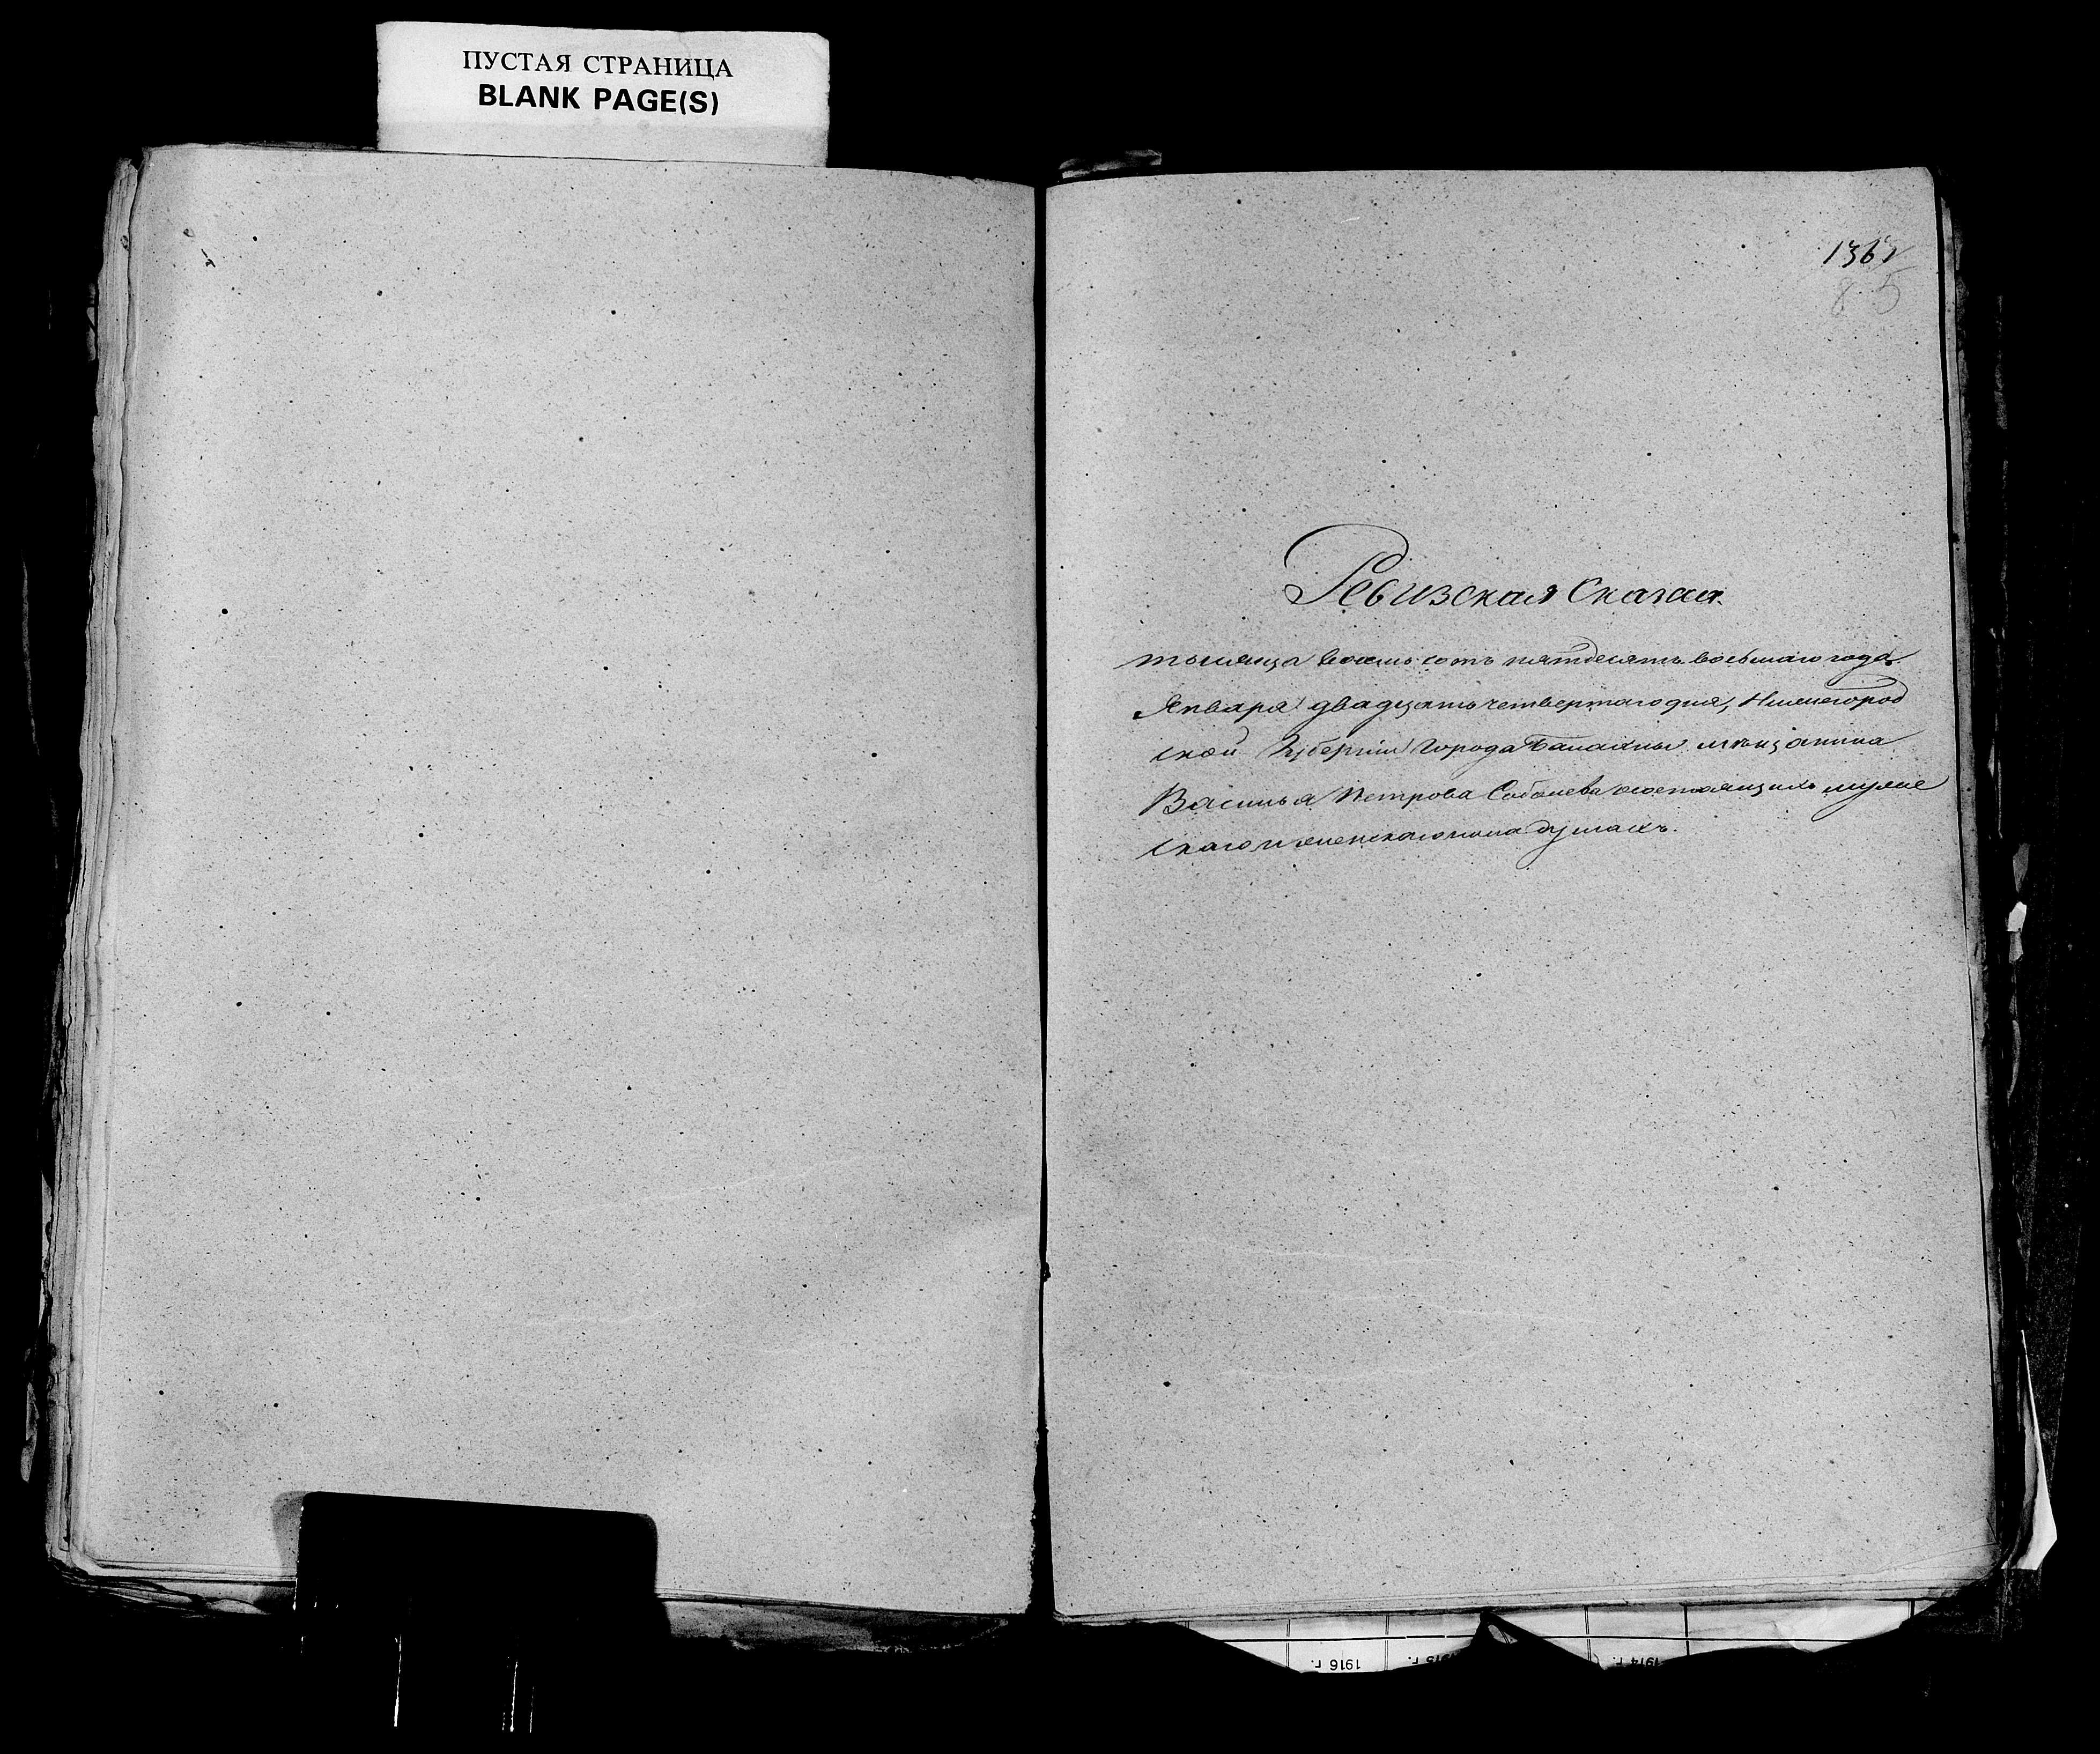 ПУСТАЯ СТРАНИЦА
BLANK PAGE(S)
1363
85
Ревизская Сказка
тысяца восемь сотъ пятдесятъ восьмаго года
Января двадцать четвертаго дня, Нижегород
ской Губернiи Города Балахны мѣщанина
Василья Петрова Соболева о состоящихъ муже
скаго и женскаго пола душахъ.
1916 г.
1914 г.